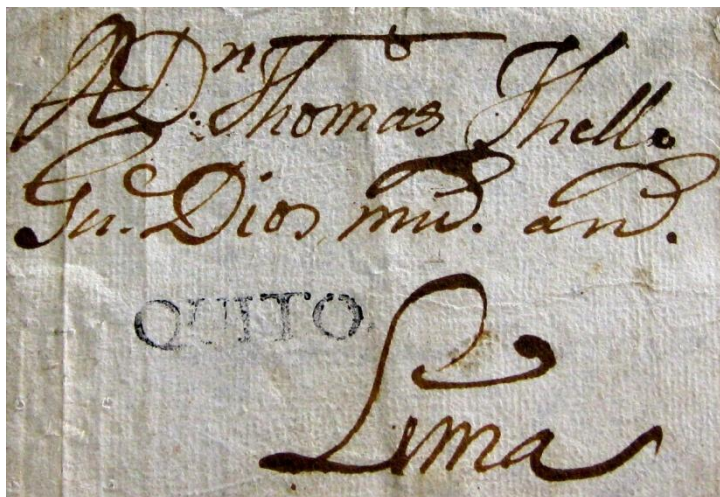 A Dn. Thomas Thello
Gu. Dios mud. and.
QUITO
Lima